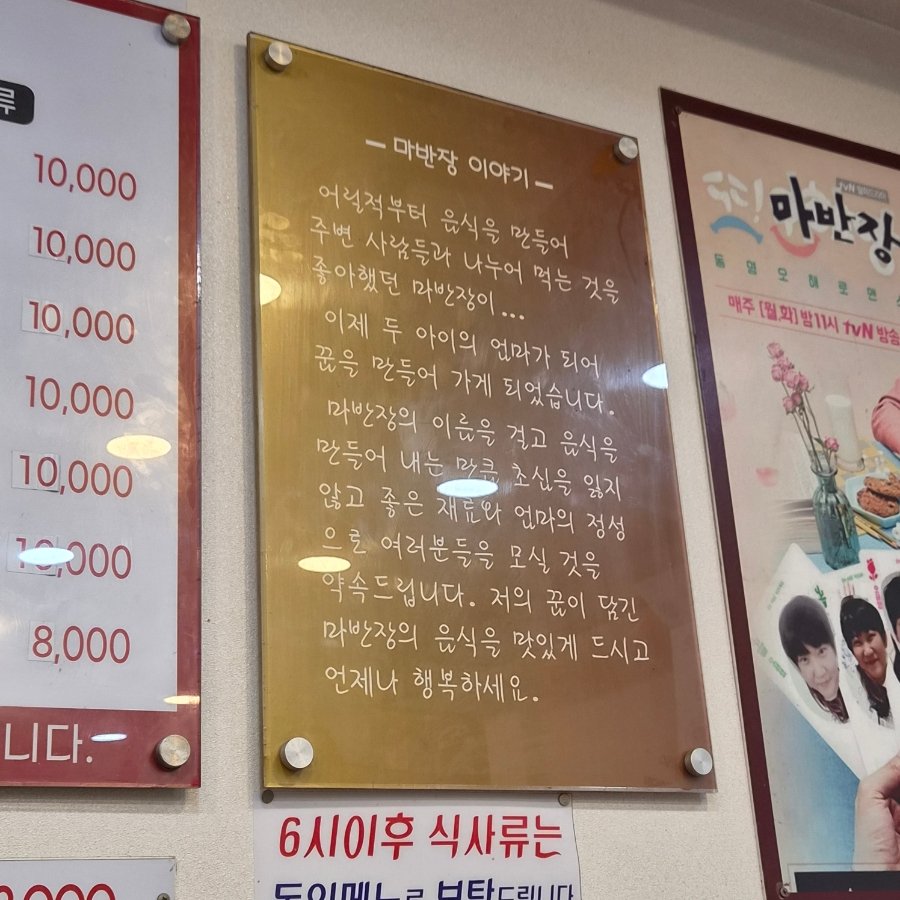 루
10,000
10,000
10,000
10,000
10,000
10,000
8,000
니다.
— 마반장 이야기 —
어릴적부터 음식을 만들어
주변 사람들과 나누어 먹는 것을
좋아했던 마반장이...
이제 두 아이의 엄마가 되어
꿈을 만들어 가게 되었습니다.
마반장의 이름을 걸고 음식을
만들어 내는 만큼 초심을 잃지
않고 좋은 재료와 엄마의 정성
으로 여러분들을 모실 것을
약속드립니다. 저의 꿈이 담긴
마반장의 음식을 맛있게 드시고
언제나 행복하세요.
6시이후 식사류는
동일메뉴로 부탁드립니다
마반장
매주 [월,화] 밤11시 tvN 방송